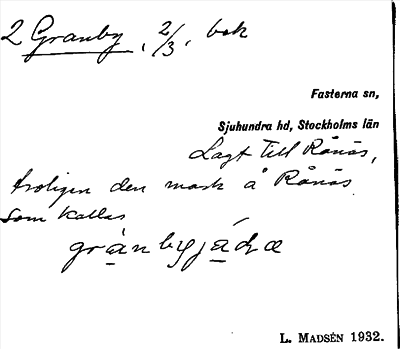 2 Granby, 2/3, bok
Fasterna sn,
Sjuhundra hd, Stockholms län
Lagt till Rånäs,
troligen den mark å Rånäs
som kallas
grànbyjádæ
L. MADSÉN 1932.